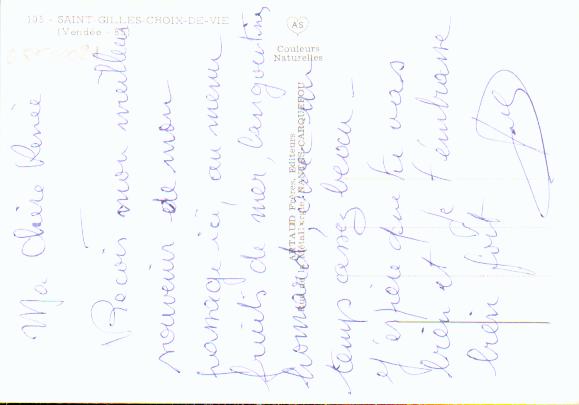 105 - SAINT-GILLES-CROIX-DE-VIE
(Vendée - 85)
AS
Couleurs
Naturelles
ARTAUD Frères, Editeurs
Rue de la Métallurgie - NANTES-CARQUEFOU
Ma chère Renée
Reçois mon meilleur
souvenir de mon
ici, au menu
fruits de mer, langoustines
homard, avec un
temps assez beau -
J'espère que tu vas
bien et je t'embrasse
bien fort